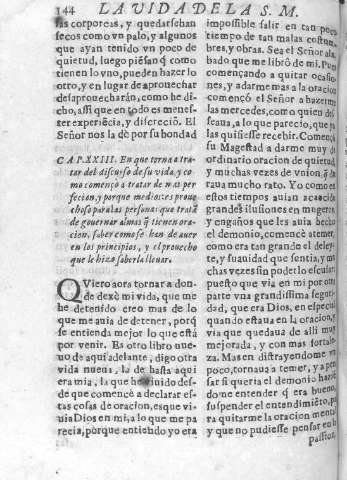 144 LA VIDA DE LA S. M.
las corporeas, y quedarsehan
secos como vn palo, y algunos
que ayan tenido vn poco de
quietud, luego piẽsan q̃ como
tienen lo vno, pueden hazer lo
otro, y en lugar de aprouechar
desaprouecharàn, como he di-
cho, assi que en todo es menes-
ter experiẽcia, y discreciõ. El
Señor nos la dè por su bondad
CAP. XXIII. En que torna a tra-
tar del discurso de su vida, y co-
mo començo a tratar de mas per-
fecion, y porque medios: es proue-
choso para las personas que tratã
de gouernar almas q̃ tienen ora-
cion, saber como se han de auer
en los principios, y el prouecho
que le hizo saberla lleuar.
QViero aora tornar a don-
de dexè mi vida, que me
he detenido creo mas de lo
que me auia de detener, porq̃
se entienda mejor lo que està
por venir. Es otro libro nue-
uo de aqui adelante, digo otra
vida nueua, la de hasta aqui
era mia, la que he viuido des-
de que comencè a declarar es-
tas cosas de oracion, es que vi-
uia Dios en mi, a lo que me pa
recia, porque entiendo yo era
impossible salir en tan poco
tiempo de tan malas costum-
bres, y obras. Sea el Señor ala-
bado que me librò de mi. Pues
començando a quitar ocasio-
nes, y a darme mas a la oracion
començò el Señor a hazerme
las mercedes, como quien des-
seaua, a lo que pareciò, que yo
las quisiesse recebir. Començò
su Magestad a darme muy de
ordinario oracion de quietud,
y muchas vezes de vnion, q̃ du
raua mucho rato. Yo como en
estos tiempos auian acaecido
grandes ilusiones en mugeres,
y engaños que les auia hecho
el demonio, comencè a temer,
como era tan grande el deley-
te, y suauidad que sentia, y mu
chas vezes sin poderlo escusar,
puesto que via en mi por otra
parte vna grandissima seguri-
dad, que era Dios, en especial
quando estaua en la oracion, y
via que quedaua de alli muy
mejorada, y con mas fortale-
za. Mas en distrayendome vn
poco, tornaua a temer, y a pen
sar si queria el demonio hazien
dome entender q̃ era bueno,
suspender el entendimiẽto, pa
ra quitarme la oracion mental
y que no pudiesse pensar en la
Passion,